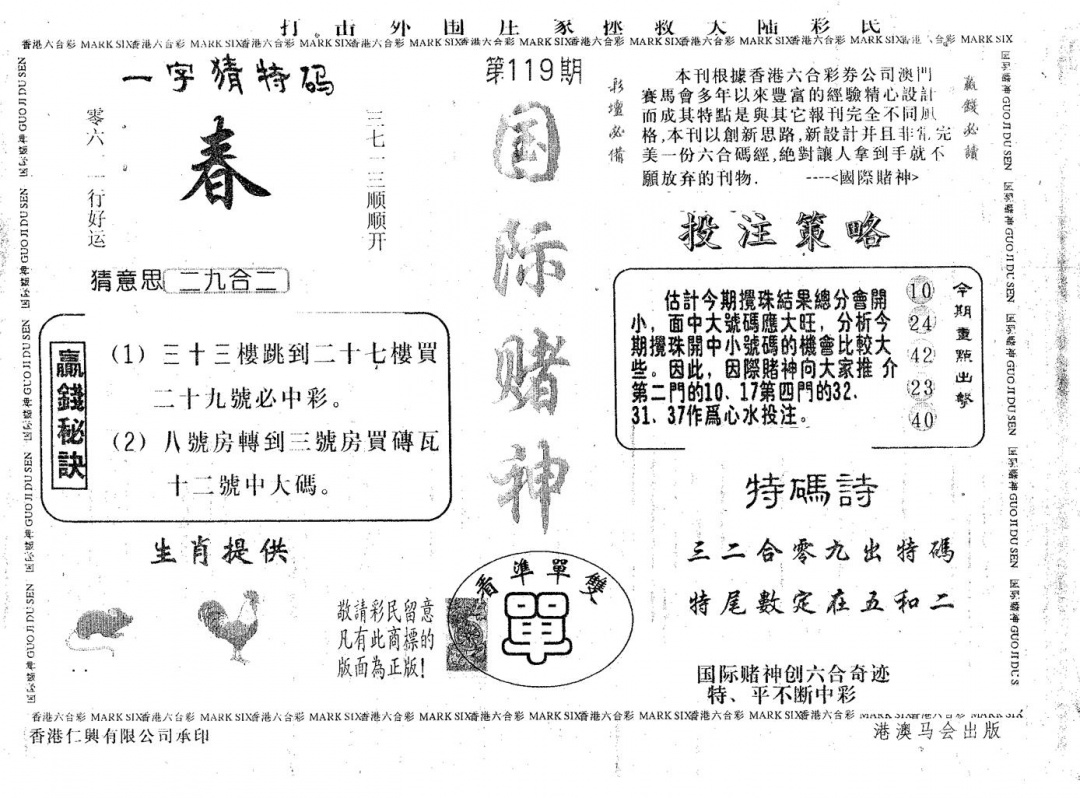 打击外围庄家拯救大陆彩民
香港六合彩 MARK SIX香港六合彩 MARK SIX香港六合彩 MARK SIX香港六合彩 MARK SIX香港六合彩 MARK SIX香港六合彩 MARK SIX香港六合彩 MARK SIX香港六合彩 MARK SIX香港六合彩 MARK SIX
一字猜特码
零六一一行好运
春
三七一三顺顺开
猜意思 二九合二
贏錢秘訣
(1) 三十三樓跳到二十七樓買
二十九號必中彩。
(2) 八號房轉到三號房買磚瓦
十二號中大碼。
生肖提供
第119期
国际赌神
敬請彩民留意
凡有此商標的
版面為正版!
看準單雙
單
彩壇必備
本刊根據香港六合彩券公司澳門
賽馬會多年以來豐富的經驗精心設計
而成其特點是與其它報刊完全不同風
格,本刊以創新思路,新設計并且非常完
美一份六合碼經,絶對讓人拿到手就不
願放弃的刊物. ----<國際賭神>
贏錢必讀
投注策略
估計今期攪珠結果總分會開
小，面中大號碼應大旺，分析今
期攪珠開中小號碼的機會比較大
些。因此，因際賭神向大家推介
第二門的10、17第四門的32、
31、37作爲心水投注。
10
24
42
23
40
今期重點出擊
特碼詩
三二合零九出特碼
特尾數定在五和二
国际赌神创六合奇迹
特、平不断中彩
香港六合彩 MARK SIX香港六合彩 MARK SIX香港六合彩 MARK SIX香港六合彩 MARK SIX香港六合彩 MARK SIX香港六合彩 MARK SIX香港六合彩 MARK SIX香港六合彩 MARK SIX香港六合彩 MARK SIX
香港仁興有限公司承印
港澳马会出版